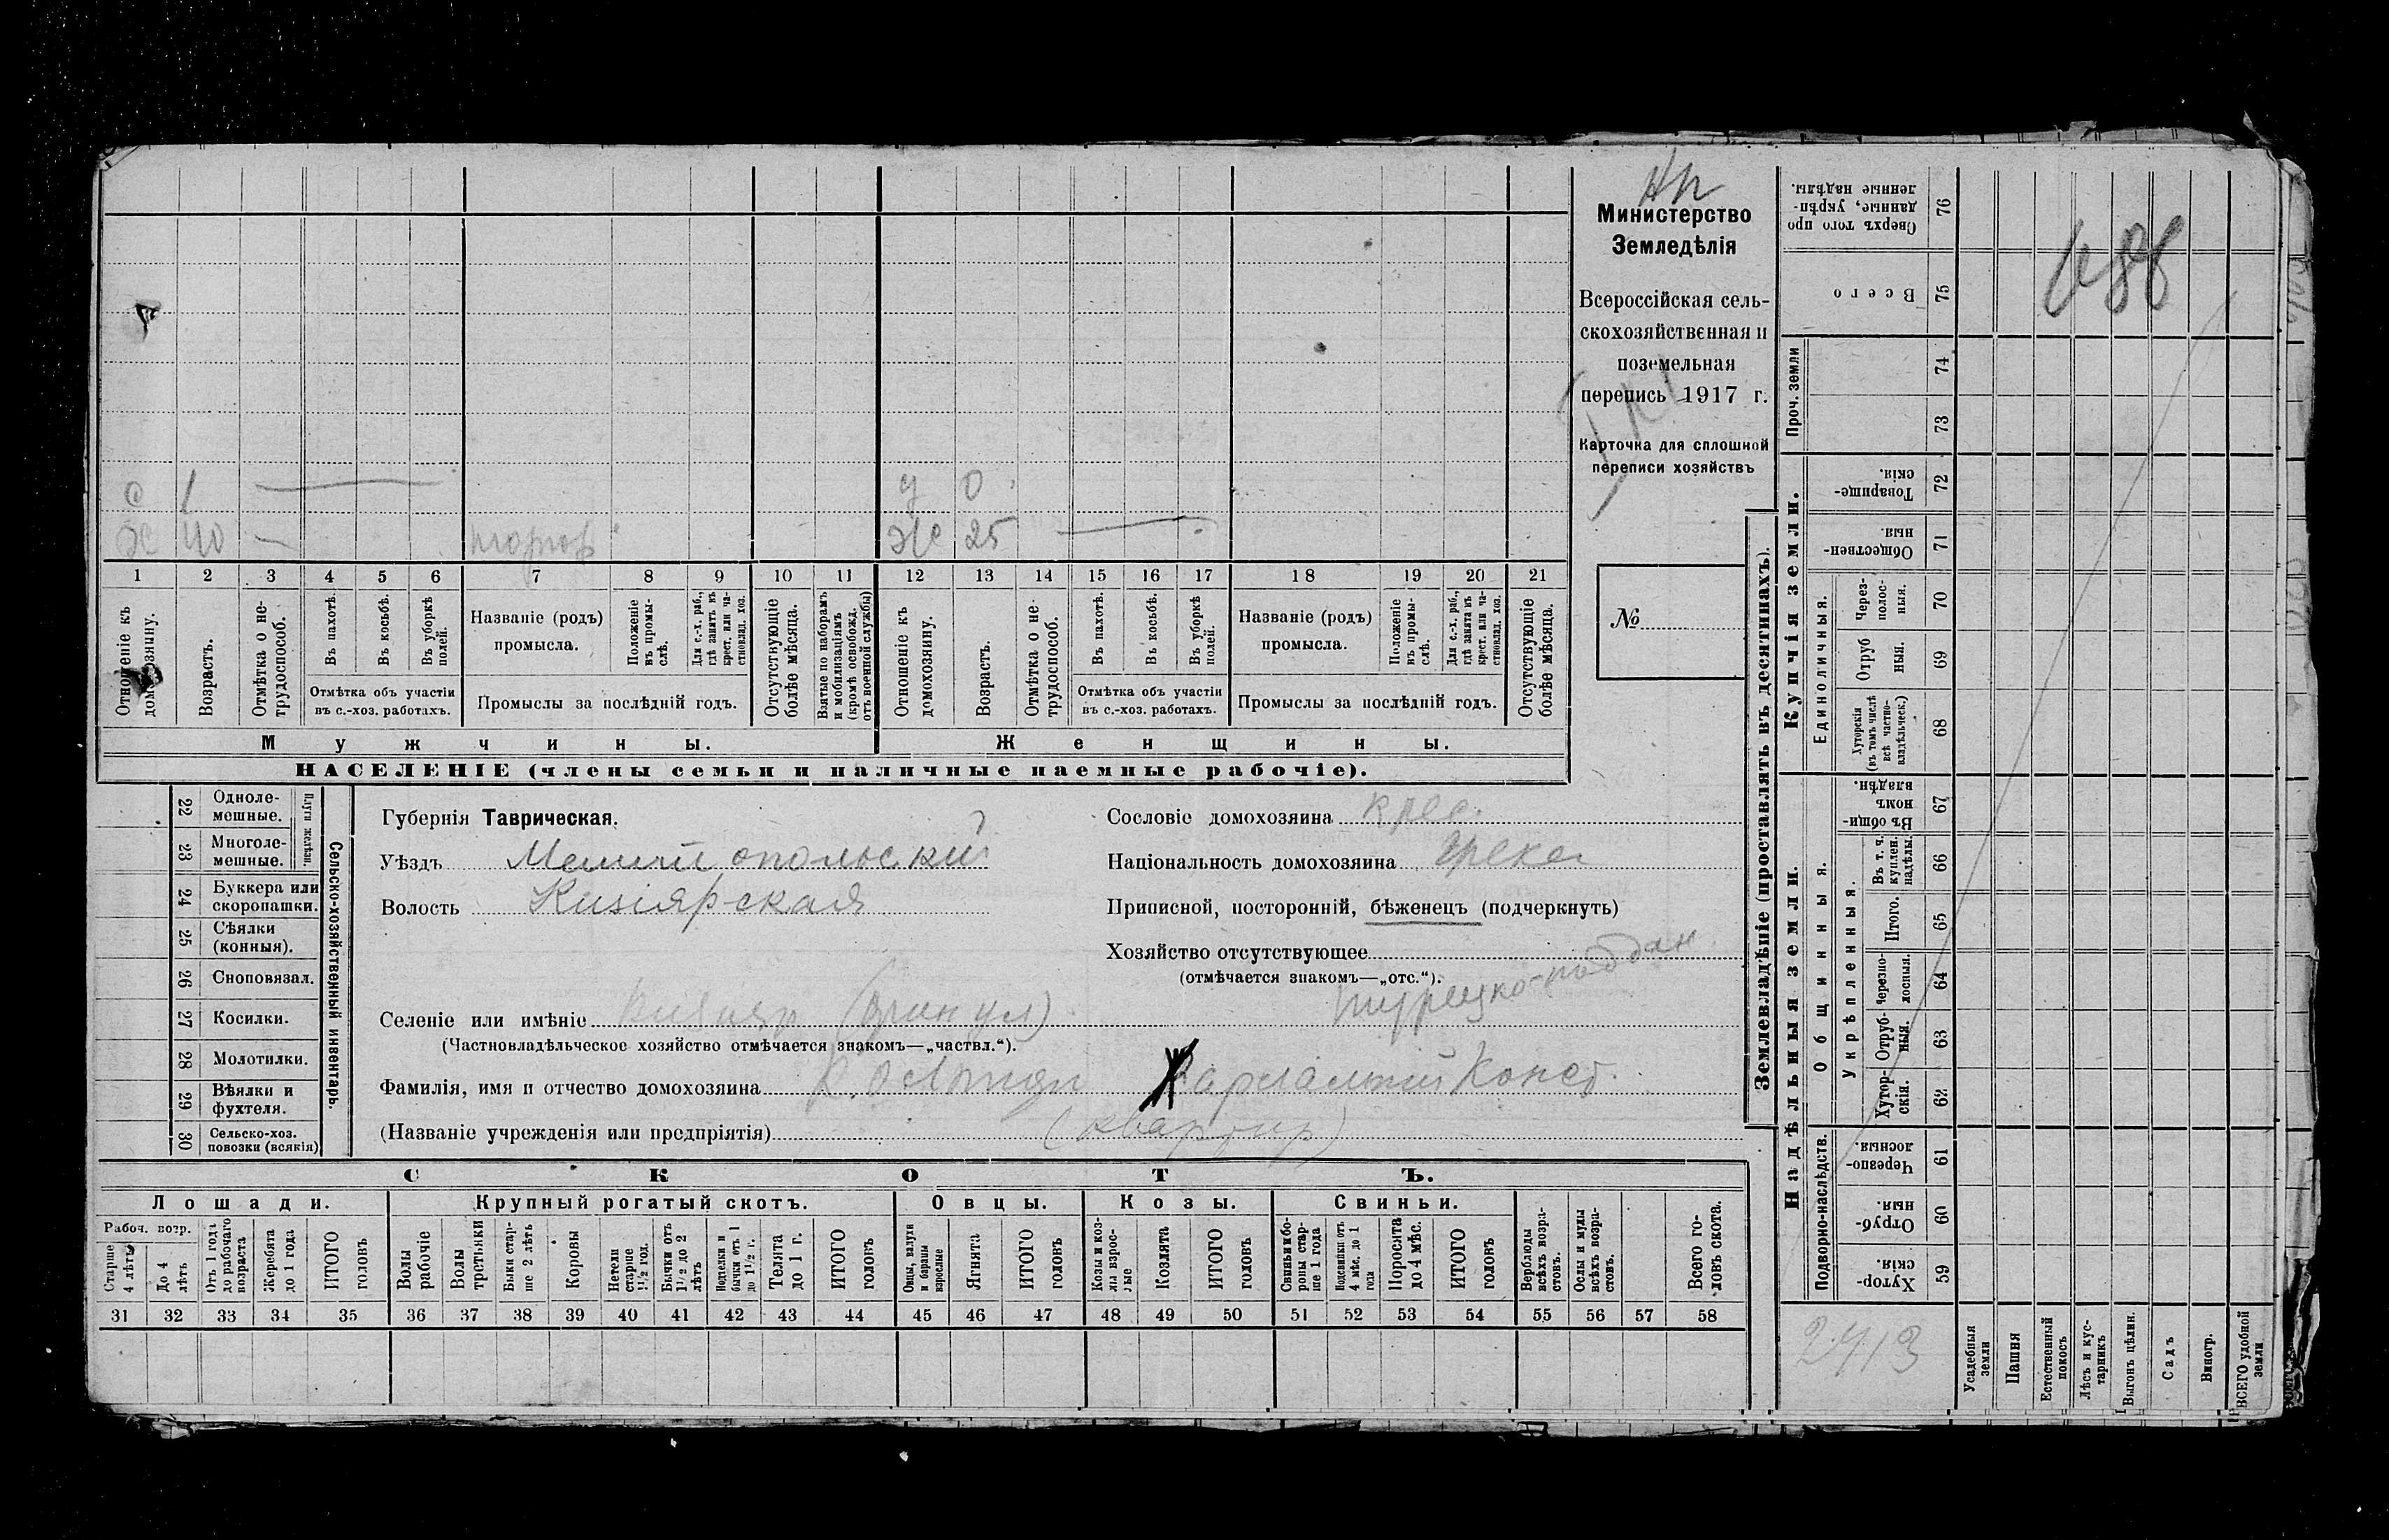 Министерство
Земледѣлія
Всероссійская сель-
скохозяйственная и
поземельная
перепись 1917 г.
Карточка для сплошной
переписи хозяйствъ
№
с 1
у 0
Х 40 —
Ж 25
1 2 3 4 5 6 7 8 9 10 11 12 13 14 15 16 17 18 19 20 21
Отношеніе къ домохозяину.
Возрастъ.
Отмѣтка о не-трудоспособ.
Въ пахотѣ.
Въ косьбѣ.
Въ уборкѣ полей.
Отмѣтка объ участіи
въ с.-хоз. работахъ.
Названіе (родъ)
промысла.
Положеніе въ промы-слѣ.
Для с.-х. раб., гдѣ занятъ въ крест. или ча-стновлад. хоз.
Промыслы за послѣдній годъ.
Отсутствующіе болѣе мѣсяца.
Взятые по наборамъ и мобилизаціямъ (кромѣ освобожд. отъ военной службы)
Отношеніе къ домохозяину.
Возрастъ.
Отмѣтка о не-трудоспособ.
Въ пахотѣ.
Въ косьбѣ.
Въ уборкѣ полей.
Отмѣтка объ участіи
въ с.-хоз. работахъ.
Названіе (родъ)
промысла.
Положеніе въ промы-слѣ.
Для с.-х. раб., гдѣ занята въ крест. или ча-стновлад. хоз.
Промыслы за послѣдній годъ.
Отсутствующіе болѣе мѣсяца.
Мужчины.
Женщины.
НАСЕЛЕНІЕ (члены семьи и наличные наемные рабочіе).
22 Одноле-мешные.
23 Многоле-мешные.
Плуги желѣзн.
24 Буккера или скоропашки.
25 Сѣялки (конныя).
26 Сноповязал.
27 Косилки.
28 Молотилки.
29 Вѣялки и фухтеля.
30 Сельско-хоз. повозки (всякія)
Сельско-хозяйственный инвентарь.
Губернія Таврическая.
Уѣздъ Мелитопольский
Волость Кизіярская
Селеніе или имѣніе Кизияр
(Частновладѣльческое хозяйство отмѣчается знакомъ—„частвл.“).
Фамилія, имя и отчество домохозяина Харлампий Конст.
(Названіе учрежденія или предпріятія) (квартир)
Сословіе домохозяина крес.
Національность домохозяина Греки
Приписной, посторонній, бѣженецъ (подчеркнуть)
Хозяйство отсутствующее
(отмѣчается знакомъ—„отс.“).
турецко-поддан
СКОТЪ.
Лошади.
Крупный рогатый скотъ.
Овцы.
Козы.
Свиньи.
Рабоч. возр.
Старше 4 лѣтъ
До 4 лѣтъ
Отъ 1 года до рабочаго возраста
Жеребята до 1 года
ИТОГО головъ
Волы рабочіе
Волы третьяки
Быки стар-ше 2 лѣтъ
Коровы
Нетели старше 1½ год.
Бычки отъ 1½ до 2 лѣтъ
Подтелки и бычки отъ 1 до 1½ г.
Телята до 1 г.
ИТОГО головъ
Овцы, валухи и бараны взрослые
Ягнята
ИТОГО головъ
Козы и коз-лы взрос-лые
Козлята
ИТОГО головъ
Свиньи и бо-ровы стар-ше 1 года
Подсвинки отъ 4 мѣс. до 1 года
Поросята до 4 мѣс.
ИТОГО головъ
Верблюды всѣхъ возра-стовъ.
Ослы и мулы всѣхъ возра-стовъ.
Всего го-ловъ скота.
31 32 33 34 35 36 37 38 39 40 41 42 43 44 45 46 47 48 49 50 51 52 53 54 55 56 57 58
Землевладѣніе (проставлять въ десятинахъ).
Сверхъ того про данные, укрѣп-ленные надѣлы. 76
Всего 75
Проч. земли 74
73
Купчія земли.
Товарище-скія. 72
Обществен-ныя. 71
Единоличныя.
Через-полос-ныя. 70
Отруб ныя. 69
Хуторскія (въ томъ числѣ всѣ частно-владѣльческ.) 68
Надѣльныя земли.
Общинныя.
Въ общи-номъ владѣн. 67
Укрѣпленныя.
Въ т. ч. куплен. надѣлы 66
Итого. 65
Черезпо-лосныя. 64
Отруб-ныя. 63
Хутор-скія. 62
Подворно-наслѣдств.
Черезпо-лосныя. 61
Отруб-ныя. 60
Хутор-скія. 59
2413
Усадебныя земли
Пашня
Естественный покосъ
Лѣсъ и кус-тарникъ
Выгонъ цѣлин.
Садъ
Виногр.
ВСЕГО удобной земли